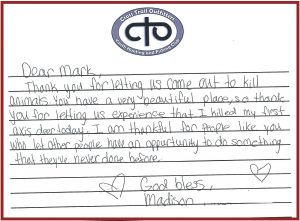 Cross Trail Outfitters
cto
Youth Hunting and Fishing Club
Dear Mark,
Thank you for letting us come out to kill
animals. You have a very beautiful place, so thank
you for letting us experience that. I killed my first
axis deer today. I am thankful for people like you
who let other people have an opportunity to do something
that they've never done before.
God bless,
Madison